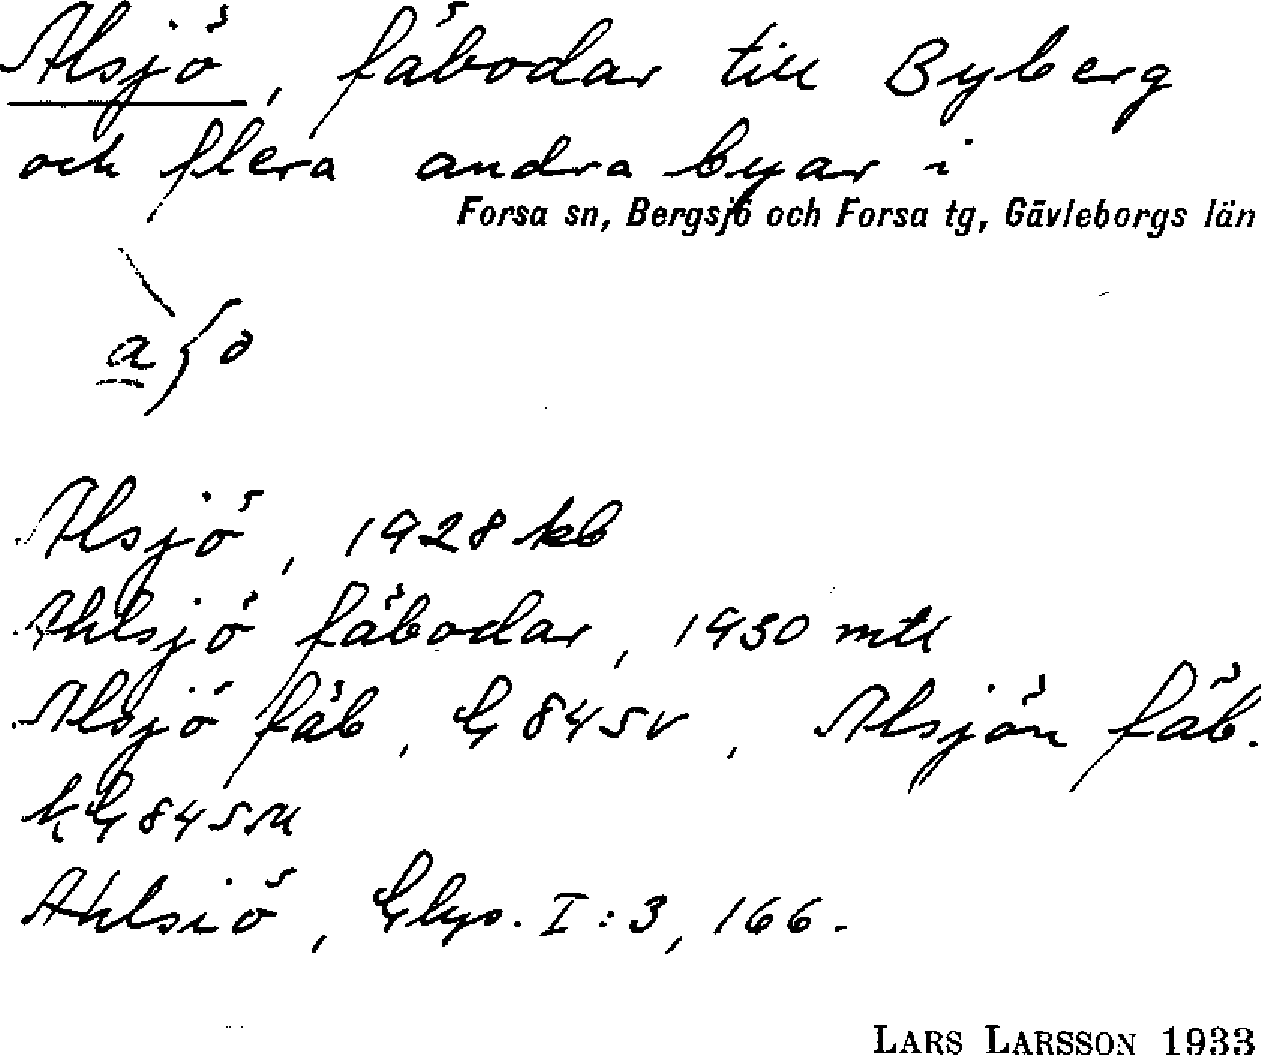 Alsjö, fäbodar till Byberg
och flera andra byar i
Forsa sn, Bergsjö och Forsa tg, Gävleborgs län
a } o
Alsjö, 1928 kb
Ahlsjö fäbodar, 1930 mtl
Alsjö fäb, G 84 SV, Alsjön fäb.
G 84 SV
Ahlsiö, Glys. I:3, 166.
LARS LARSSON 1933